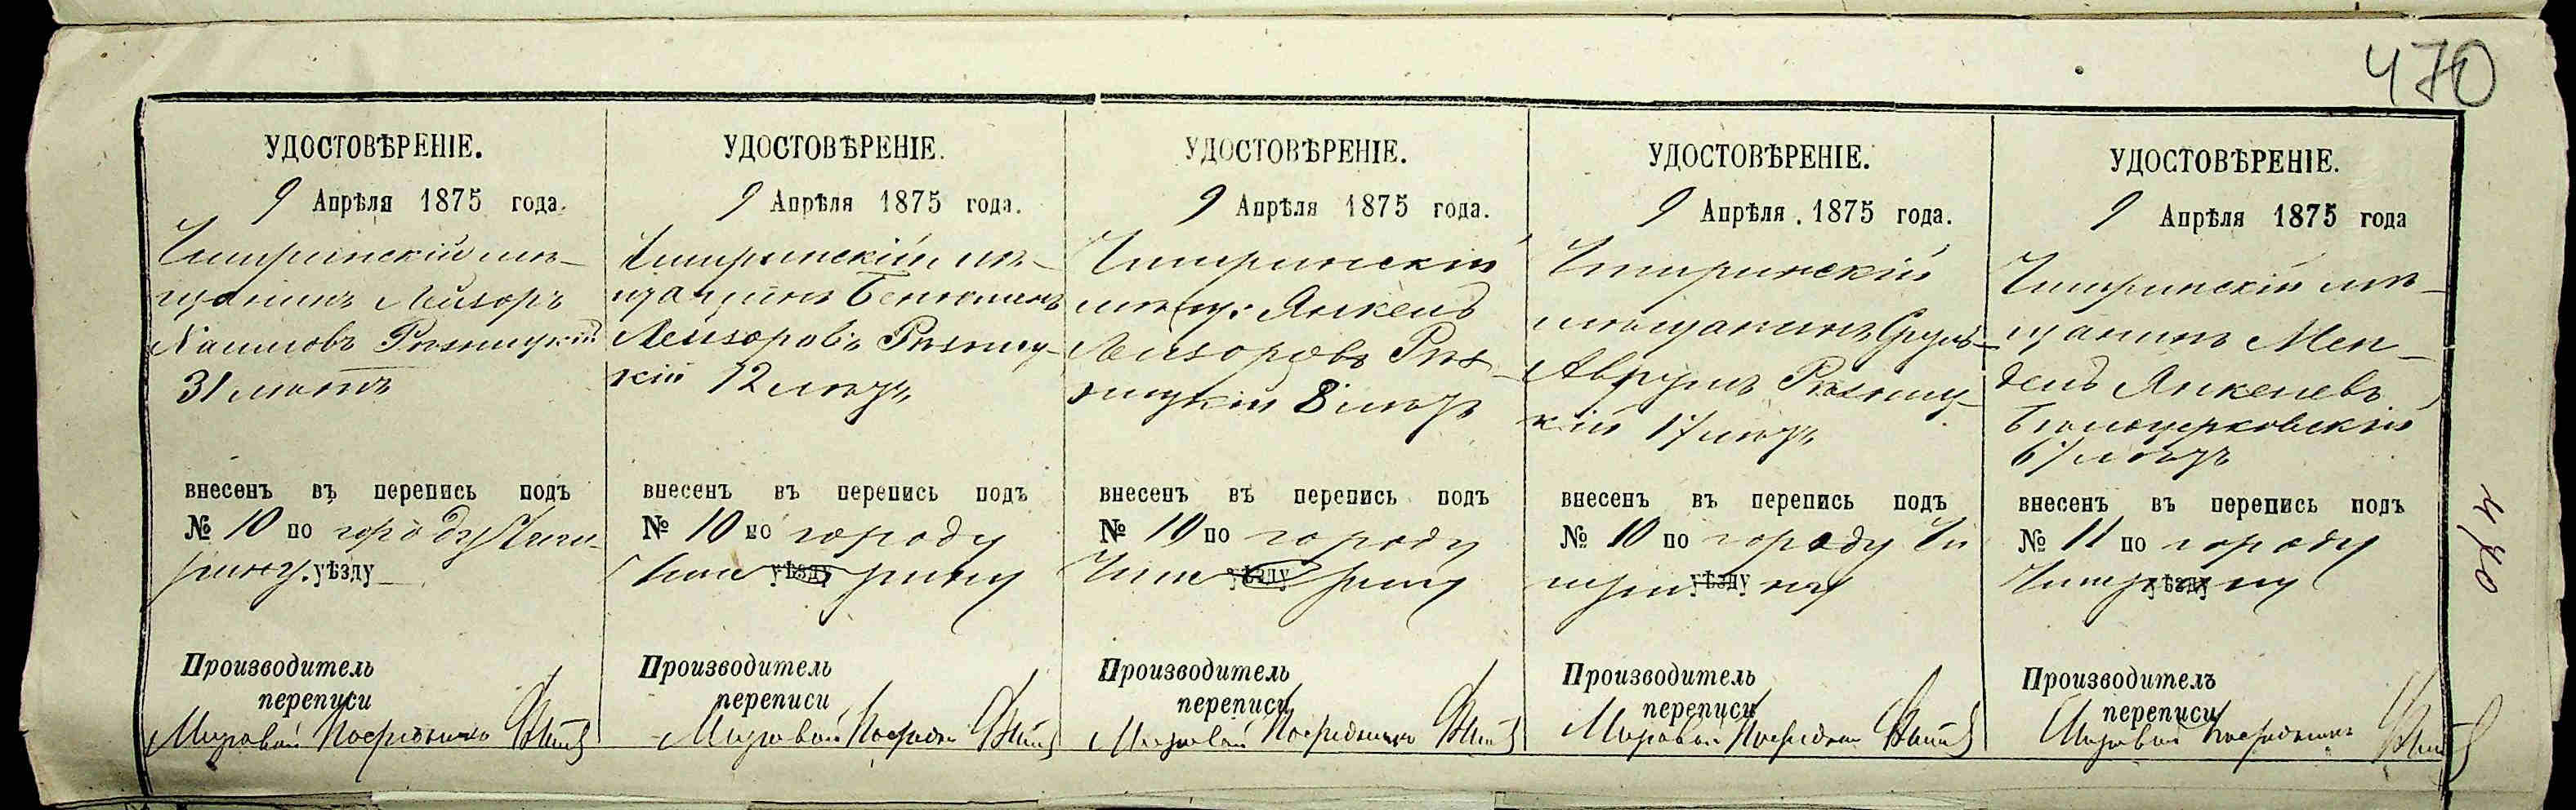 470
УДОСТОВѢРЕНІЕ.
9 Апрѣля 1875 года.
Чигринскій мѣ-
щанинъ Лейзоръ
Хаимовъ Рѣзницкій
31 лѣтъ
внесенъ въ перепись подъ
№ 10 по городу Чиги-
рину. уѣзду
Производитель
переписи
Мировой Посредникъ
УДОСТОВѢРЕНІЕ.
9 Апрѣля 1875 года.
Чигринскій мѣ-
щанинъ Беньюминъ
Лейзоровъ Рѣзниц-
кій 12 лѣтъ
внесенъ въ перепись подъ
№ 10 по городу
Чиги уѣзду рину
Производитель
переписи
Мировой Посредн
УДОСТОВѢРЕНІЕ.
9 Апрѣля 1875 года.
Чигринскій
мѣщ: Янкель
Лейзоровъ Рѣз-
ницкій 8 лѣтъ
внесенъ въ перепись подъ
№ 10 по городу
Чиги уѣзду рину
Производитель
переписи
Мировой Посредникъ
УДОСТОВѢРЕНІЕ.
9 Апрѣля 1875 года.
Чигринскій
мѣщанинъ Сруль-
Аврумъ Рѣзниц-
кій 17 лѣтъ
внесенъ въ перепись подъ
№ 10 по городу Чи
гири уѣзду ну
Производитель
переписи
Мировой Посредн
УДОСТОВѢРЕНІЕ.
9 Апрѣля 1875 года
Чигринскій мѣ-
щанинъ Мен-
дель Янкелевъ
Бѣлоцерковскій
67 лѣтъ
внесенъ въ перепись подъ
№ 11 по городу
Чигри уѣзду ну
Производитель
переписи
Мировой Посредникъ
470